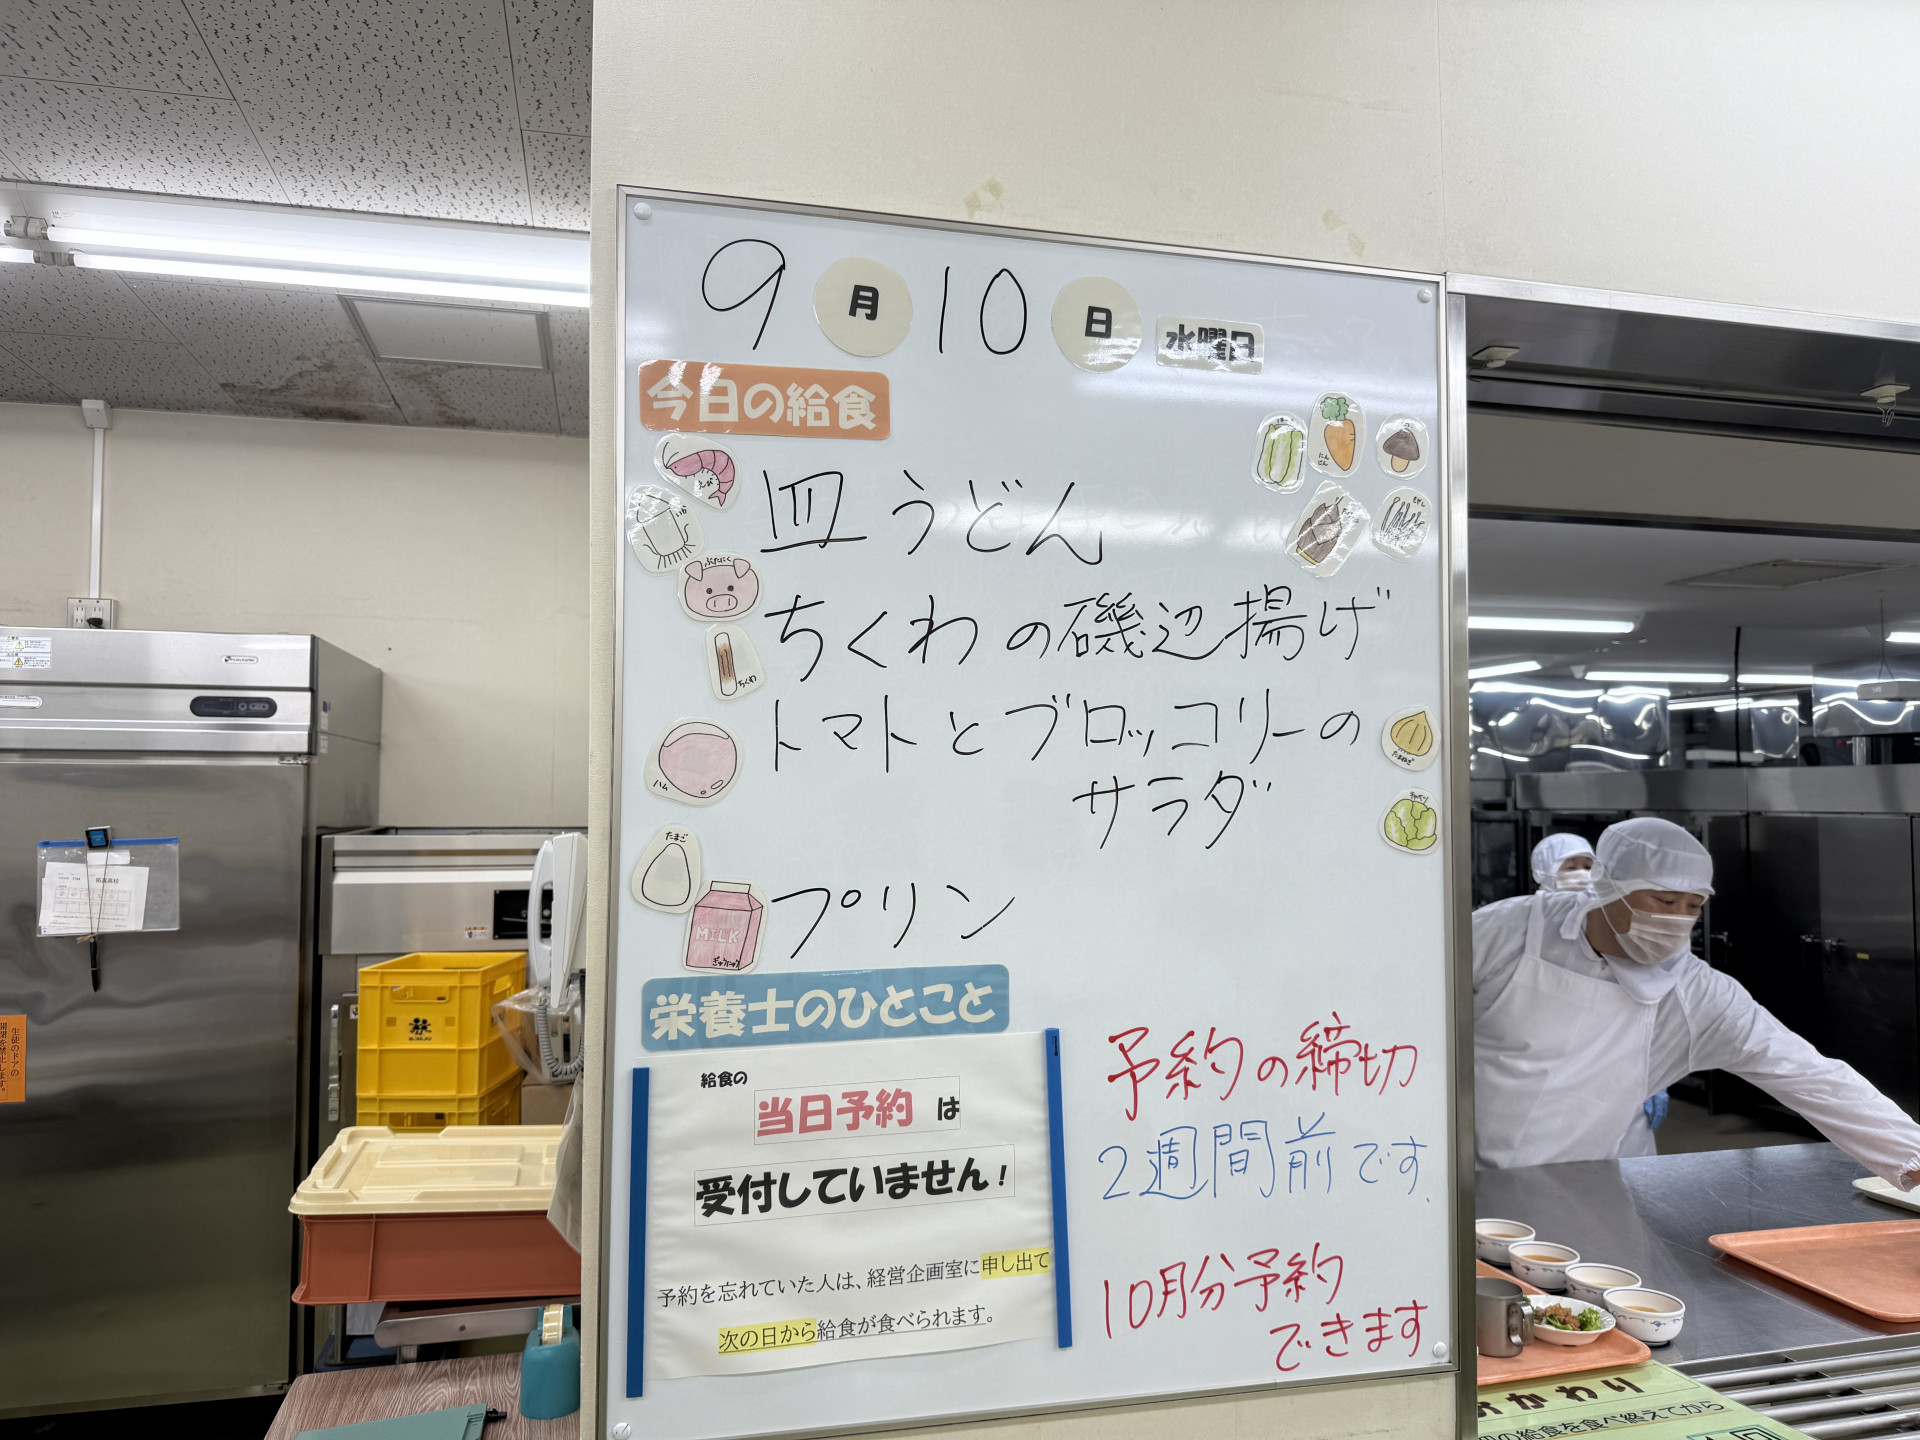 9月10日 水曜日
今日の給食
えび
いか
ぶたにく
ちくわ
にんじん
もやし
皿うどん
ちくわの磯辺揚げ
トマトとブロッコリーの
サラダ
ハム
たまねぎ
キャベツ
たまご
MILK
ぎゅうにゅう
プリン
栄養士のひとこと
給食の
当日予約は
受付していません!
予約を忘れていた人は、経営企画室に申し出て
次の日から給食が食べられます。
予約の締切
2週間前です.
10月分予約
できます
生徒のドアの
開閉を禁止します。
おかわり
の給食を食べ終えてから